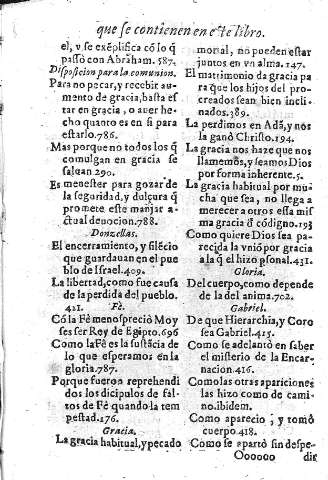 que se contienen en este libro.
el, y se exẽplifica cõ lo q̃
passò con Abraham. 587.
Disposicion para la comunion.
Para no pecar, y recebir au-
mento de gracia, basta es
tar en gracia, o auer he-
cho quanto es en si para
estarlo. 786.
Mas porque no todos los q̃
comulgan en gracia se
saluan 290.
Es menester para gozar de
la seguridad, y dulçura q̃
promete este manjar a-
ctual deuocion. 788.
Donzellas.
El encerramiento, y silẽcio
que guardauan en el pue
blo de Israel. 409.
La libertad, como fue causa
de la perdida del pueblo.
421. Fè.
Cõ la Fè menospreciò Moy
ses ser Rey de Egipto. 696
Como la Fè es la sustãcia de
lo que esperamos en la
gloria. 787.
Porque fueron reprehendi
dos los dicipulos de fal-
tos de Fè quando la tem
pestad. 176.
Gracia.
La gracia habitual, y pecado
mortal, no pueden estar
juntos en vn alma. 147.
El matrimonio da gracia pa
ra que los hijos del pro-
creados sean bien incli-
nados. 389.
La perdimos en Adã, y nos
la ganò Christo. 194.
La gracia nos haze que nos
llamemos, y seamos Dios
por forma inherente. 5.
La gracia habitual por mu-
cha que sea, no llega a
merecer a otros essa mis
ma gracia d̃ cõdigno. 193
Como quiere Dios sea pa-
recida la vniõ por gracia
a la q̃ el hizo p̃sonal. 431.
Gloria.
Del cuerpo, como depende
de la del anima. 702.
Gabriel.
De que Hierarchia, y Coro
sea Gabriel. 415.
Como se adelantò en saber
el misterio de la Encar-
nacion. 416.
Como las otras apariciones
las hizo como de cami-
no. ibidem.
Como aparecio, y tomò
cuerpo 418.
Como se apartò sin despe-
Oooooo dir